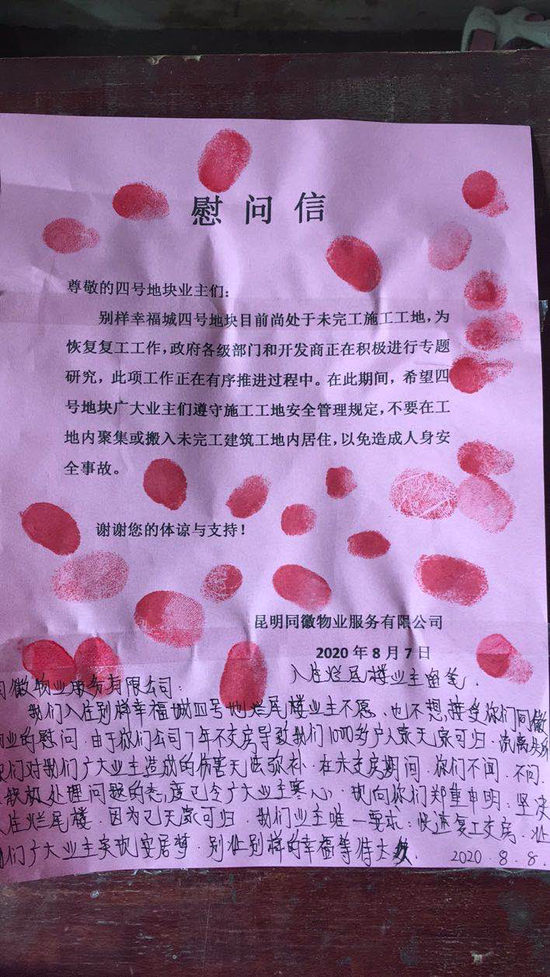 慰问信
尊敬的四号地块业主们：
别样幸福城四号地块目前尚处于未完工施工工地，为
恢复复工工作，政府各级部门和开发商正在积极进行专题
研究，此项工作正在有序推进过程中。在此期间，希望四
号地块广大业主们遵守施工工地安全管理规定，不要在工
地内聚集或搬入未完工建筑工地内居住，以免造成人身安
全事故。
谢谢您的体谅与支持！
昆明同徽物业服务有限公司
2020年8月7日
入住烂尾楼业主留笔.
同徽物业服务有限公司：
我们入住别样幸福城四号地烂尾楼业主不愿，也不想，接受你们同徽
业的慰问.由于你们公司7年不交房导致我们1000多户人家无家可归.
们对我们广大业主造成的伤害无法弥补.在未交房期间.你们不闻.不问.
处理问题的态度已令广大业主寒心.现向你们郑重申明：坚决
住烂尾楼.因为已无家可归.我们业主唯一要求：快速复工交房.让
我们广大业主实现安居梦.别让别样的幸福等待太久. 2020.8.8.